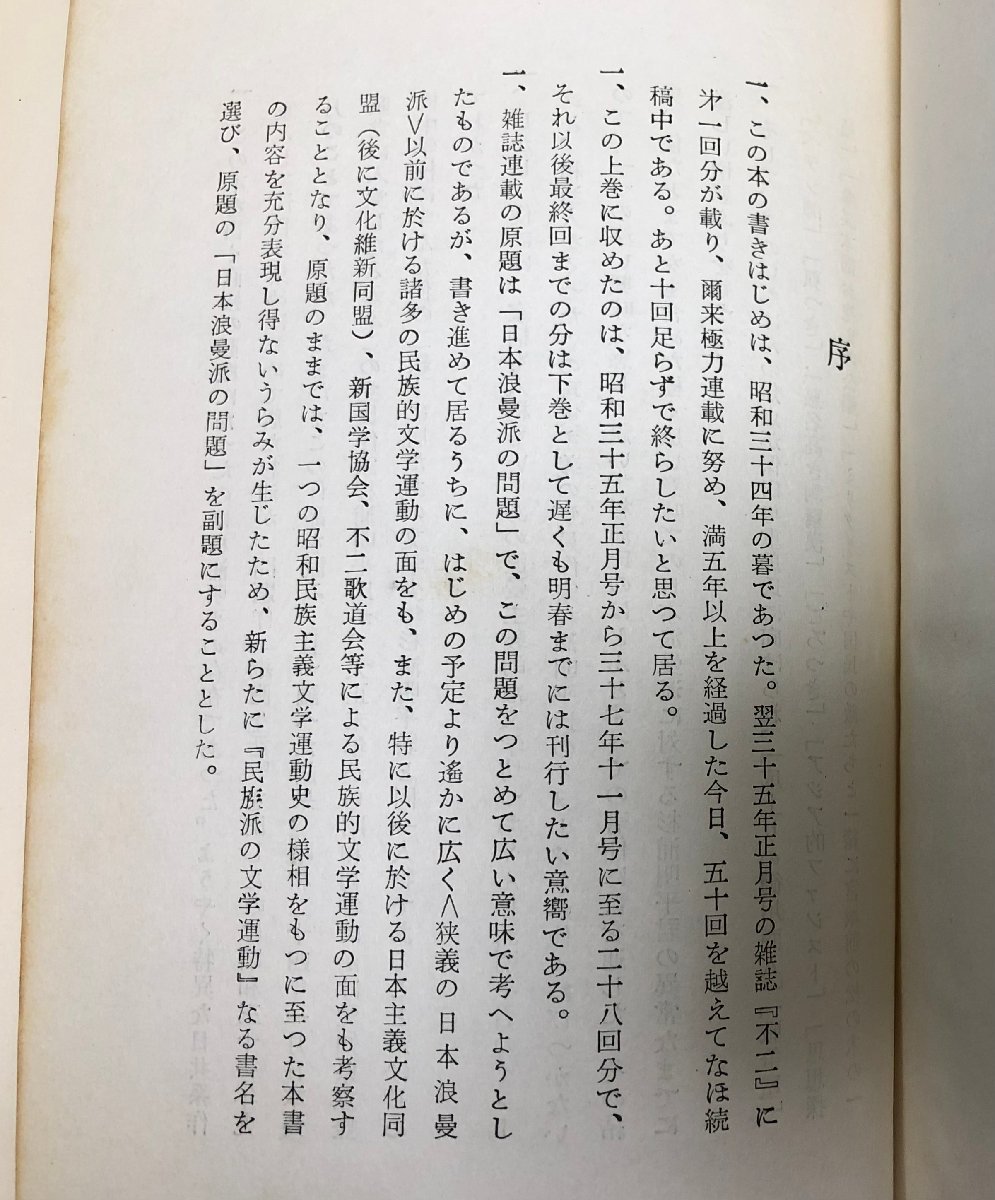 序
一、この本の書きはじめは、昭和三十四年の暮であつた。翌三十五年正月号の雑誌『不二』に
㐧一回分が載り、爾来極力連載に努め、満五年以上を経過した今日、五十回を越えてなほ続
稿中である。あと十回足らずで終らしたいと思つて居る。
一、この上巻に収めたのは、昭和三十五年正月号から三十七年十一月号に至る二十八回分で、
それ以後最終回までの分は下巻として遅くも明春までには刊行したい意嚮である。
一、雑誌連載の原題は「日本浪曼派の問題」で、この問題をつとめて広い意味で考へようとし
たものであるが、書き進めて居るうちに、はじめの予定より遙かに広く＜狭義の日本浪曼
派＞以前に於ける諸多の民族的文学運動の面をも、また、特に以後に於ける日本主義文化同
盟（後に文化維新同盟）、新国学協会、不二歌道会等による民族的文学運動の面をも考察す
ることとなり、原題のままでは、一つの昭和民族主義文学運動史の様相をもつに至つた本書
の内容を充分表現し得ないうらみが生じたため、新らたに『民族派の文学運動』なる書名を
選び、原題の「日本浪曼派の問題」を副題にすることとした。